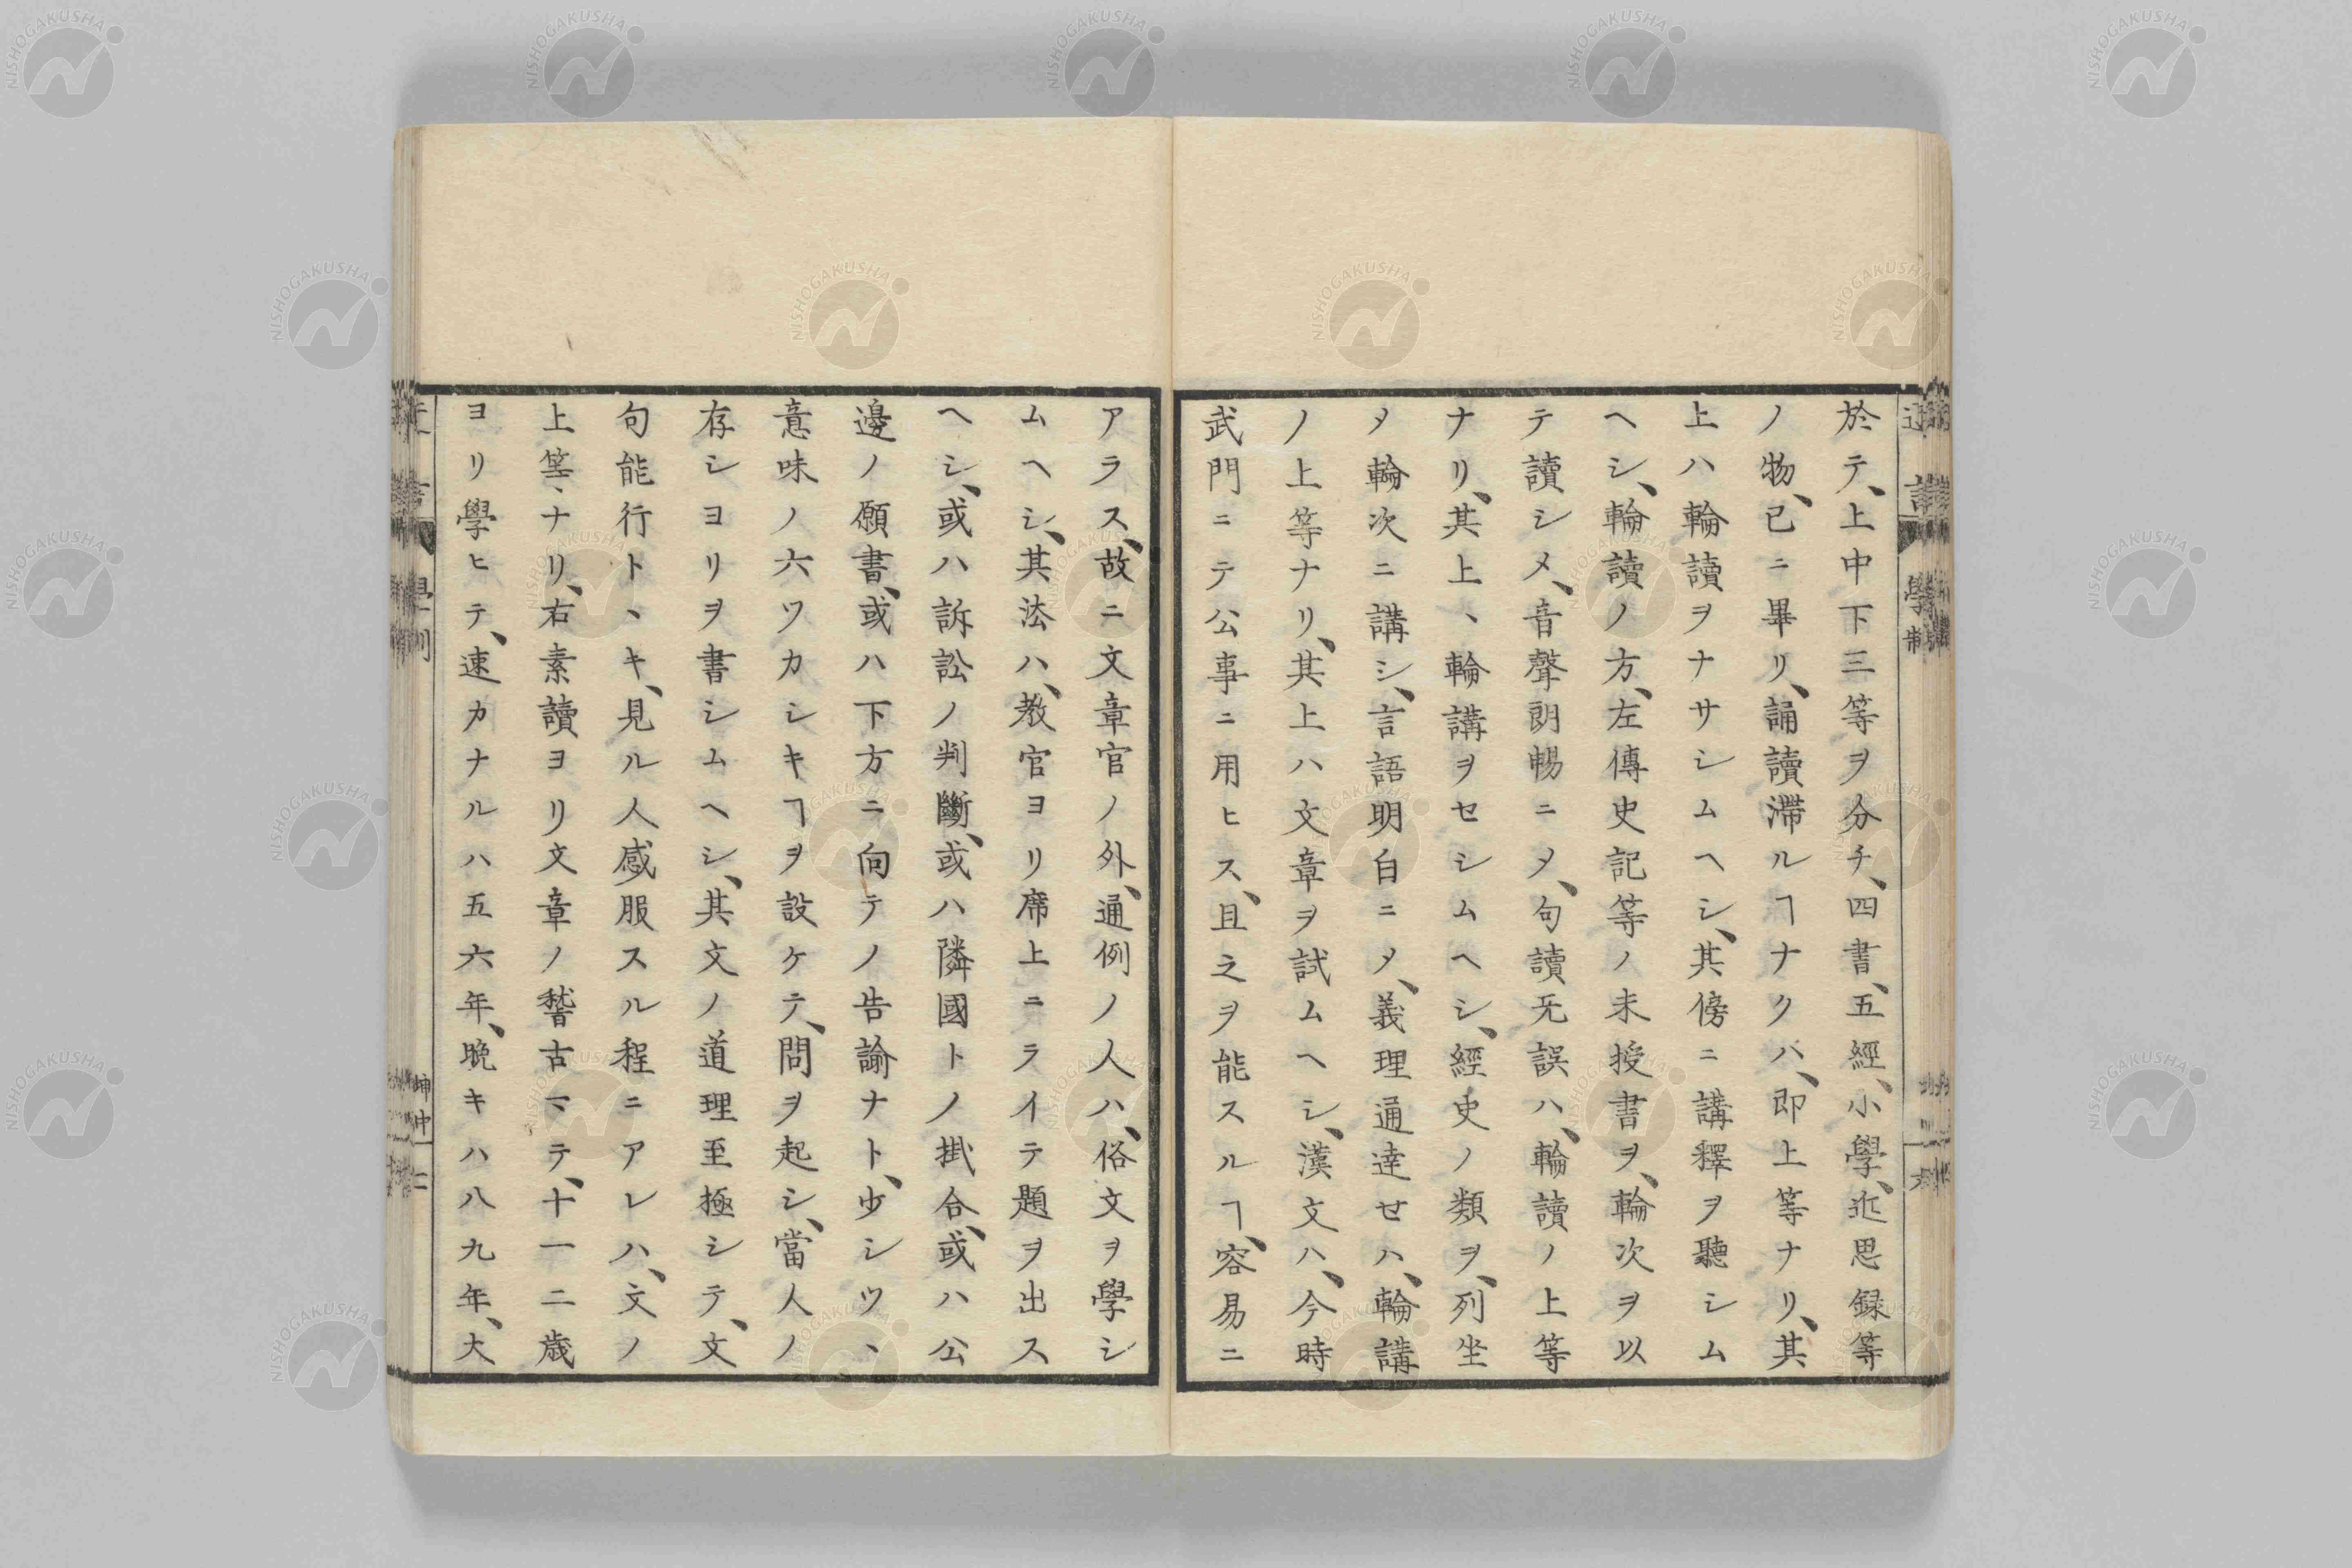 於テ、上中下三等ヲ分チ、四書、五經、小學、近思録等
ノ物、已ニ畢リ、誦讀滞ルヿナクハ、即上等ナリ、其
上ハ輪讀ヲナサシムヘシ、其傍ニ講釋ヲ聽シム
ヘシ、輪讀ノ方、左傳史記等ノ未授書ヲ、輪次ヲ以
テ讀シメ、音聲朗暢ニメ、句讀无誤ハ、輪讀ノ上等
ナリ、其上、輪講ヲセシムヘシ、經史ノ類ヲ、列坐
メ輪次ニ講シ、言語明白ニメ、義理通達せハ、輪講
ノ上等ナリ、其上ハ文章ヲ試ムヘシ、漢文ハ、今時
武門ニテ公事ニ用ヒス、且之ヲ能スルヿ、容易ニ
アラス、故ニ文章官ノ外、通例ノ人ハ、俗文ヲ學シ
ムヘシ、其法ハ、教官ヨリ席上ニライテ題ヲ出ス
ヘシ、或ハ訴訟ノ判斷、或ハ隣國トノ掛合、或ハ公
邊ノ願書、或ハ下方ニ向テノ告諭ナト、少シツヽ
意味ノ六ツカシキヿヲ設ケテ、問ヲ起シ、當人ノ
存シヨリヲ書シムヘシ、其文ノ道理至極シテ、文
句能行トヽキ、見ル人感服スル程ニアレハ、文ノ
上等ナリ、右素讀ヨリ文章ノ稽古マテ、十一二歳
ヨリ學ヒテ、速カナルハ五六年、晩キハ八九年、大
NISHOGAKUSHA